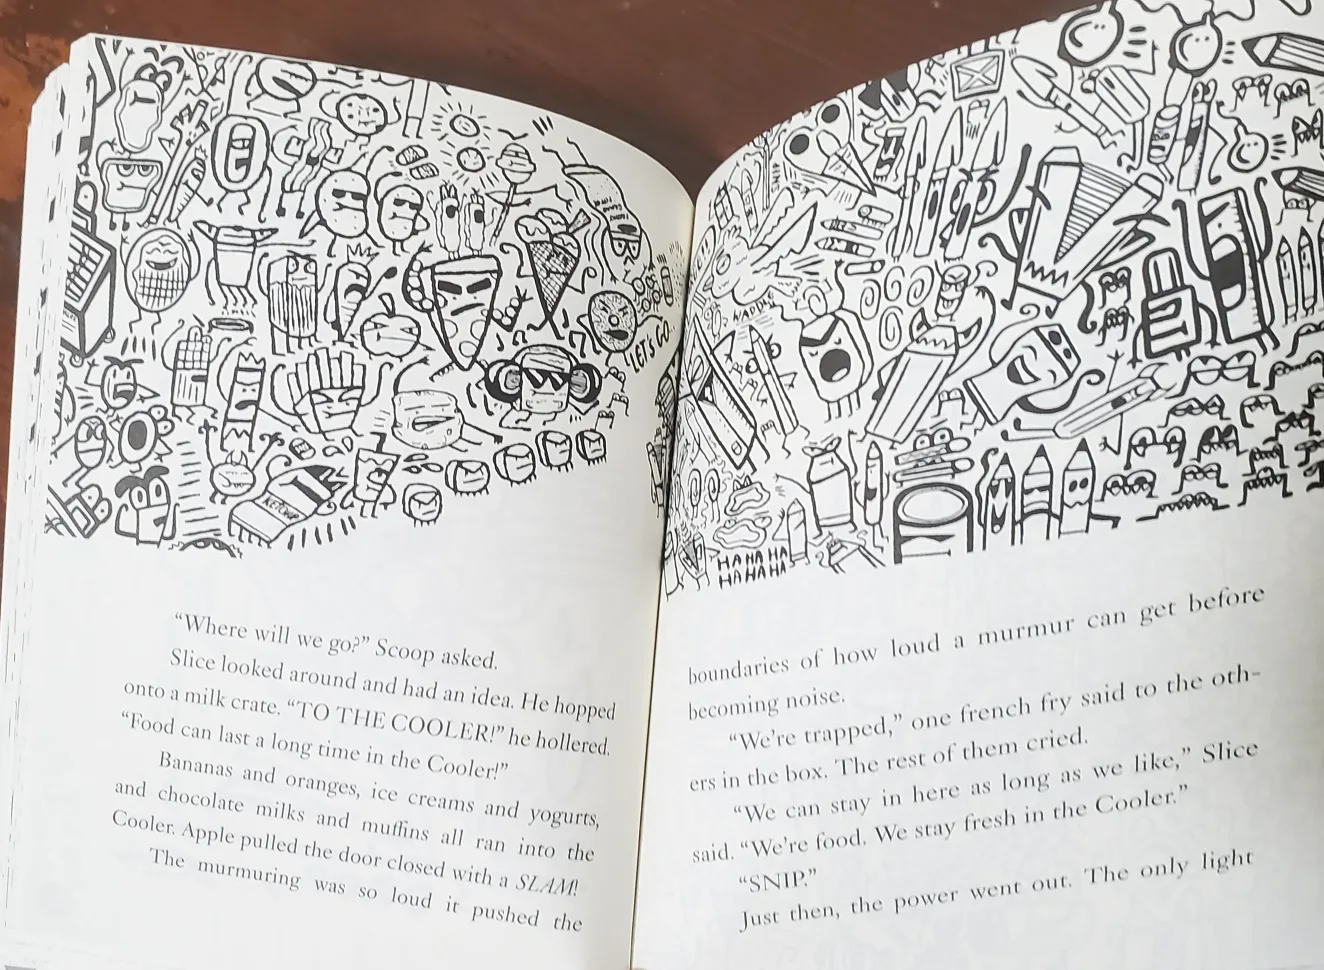 LET'S GO
KETCHUP
WADDLE
HA HA HA
HA HA HA
“Where will we go?” Scoop asked.
Slice looked around and had an idea. He hopped
onto a milk crate. “TO THE COOLER!” he hollered.
“Food can last a long time in the Cooler!”
Bananas and oranges, ice creams and yogurts,
and chocolate milks and muffins all ran into the
Cooler. Apple pulled the door closed with a SLAM!
The murmuring was so loud it pushed the
boundaries of how loud a murmur can get before
becoming noise.
“We’re trapped,” one french fry said to the oth-
ers in the box. The rest of them cried.
“We can stay in here as long as we like,” Slice
said. “We’re food. We stay fresh in the Cooler.”
“SNIP.”
Just then, the power went out. The only light